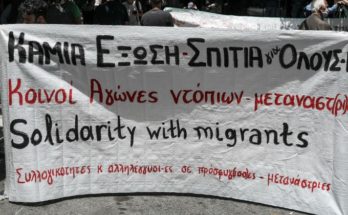 ΚΑΜΙΑ ΕΞΩΣΗ-ΣΠΙΤΙΑ για ΟΛΟΥΣ-
Κοινοί Αγώνες ντόπιων-μεταναστ(ρι
Solidarity with migrants
Συλλογικότητες κ αλληλέγγυοι-ες σε πρόσφυγες-μετανάστριες